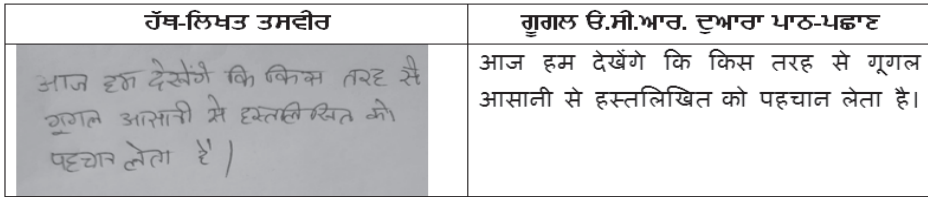 ਹੱਥ-ਲਿਖਤ ਤਸਵੀਰ
ਗੂਗਲ ਓ.ਸੀ.ਆਰ. ਦੁਆਰਾ ਪਾਠ-ਪਛਾਣ
आज हम देखेंगे कि किस तरह से
गूगल आसानी से हस्तलिखित को
पहचान लेता है।
आज हम देखेंगे कि किस तरह से गूगल
आसानी से हस्तलिखित को पहचान लेता है।